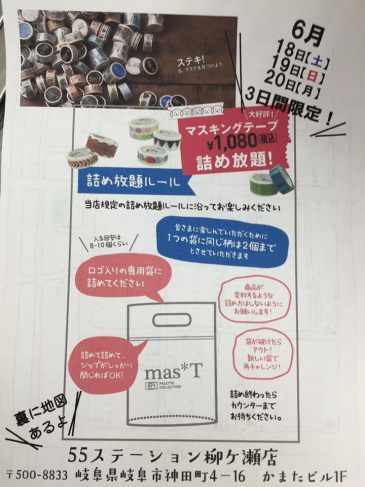 ステキ!
6月
18日[土]
19日[日]
20日[月]
3日間限定!
大好評!
マスキングテープ
¥1,080(税込)
詰め放題!
詰め放題ルール
当店規定の詰め放題ルールに沿ってお楽しみください
皆さまに楽しんでいただくために
1つの袋に同じ柄は2個まで
とさせていただきます
入る目安は
8-10個くらい
ロゴ入りの専用袋に
詰めてください
商品が
変形するような
詰め方はしないように
お願いします!
袋が破けたら
アウト!
新しい袋で
再チャレンジ!
詰めて詰めて、
ジップがしっかり
閉じればOK!
mas*T
PALETTE
COLLECTION
詰め終わったら
カウンターまで
お持ちください。
裏に地図
あるよ
55ステーション柳ケ瀬店
〒500-8833 岐阜県岐阜市神田町4-16 かまたビル1F